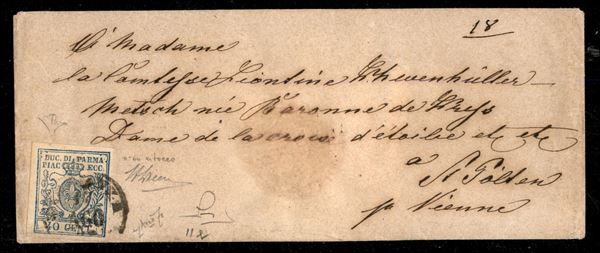 18
A Madame
la Comtesse Léontine Khevenhüller-
Metsch née Baronne de
Dame de la croix d'étoilée etc etc
à
St Pölten
pr Vienne
DUC. DI PARMA
PIAC. ECC.
40 CENT.